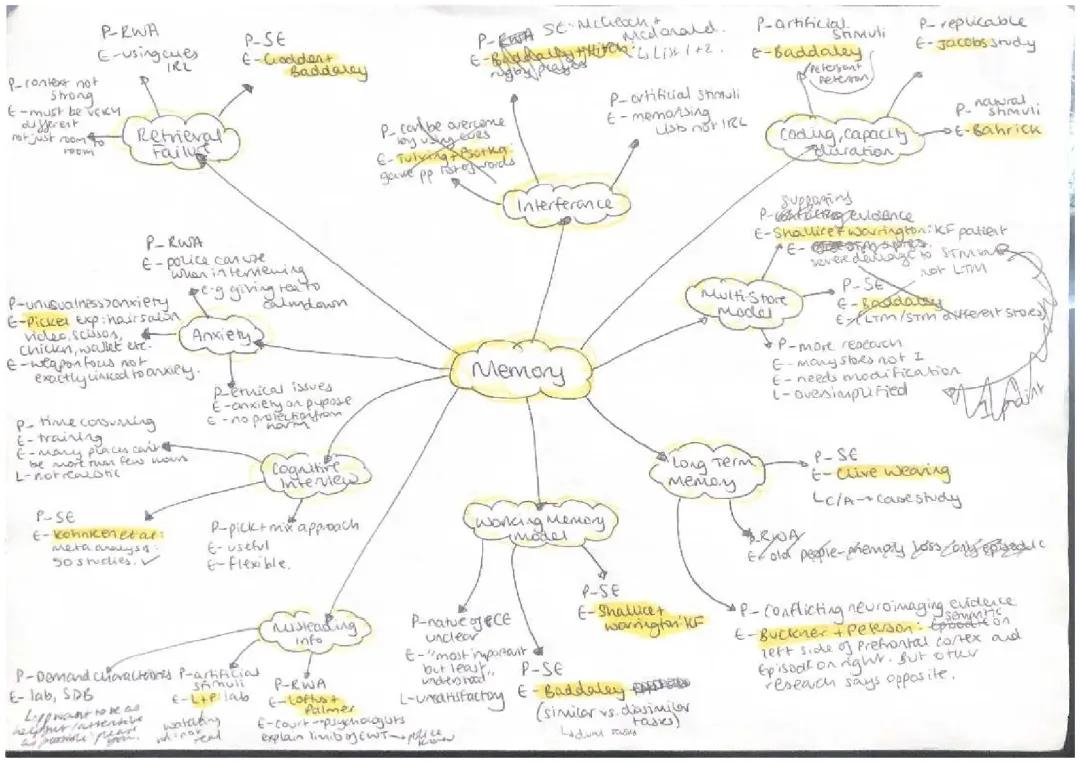 P-RWA
E-using cues
IRL
P-SE
E-Godden+
Baddaley
P-context not
strong
E-must be very
different
not just room to
room
Retrieval
Failure
P-RWA
SE: McGeoch +
Mcdonald.
E-Baddaley+Hitch:
rugby players
L List 1+2.
P-artificial stimuli
E-memorising
lists not IRL
P-can be overcome
by using cues
E-Tulving+Psotka:
gave pp list of words
Interferance
P-artificial
stimuli
E-Baddaley
Peterson+
Peterson
P-replicable
E-Jacobs study
P-natural
stimuli
E-Bahrick
Coding, capacity,
duration
supporting
P-evidence
E-Shallice+Warrington: KF patient
E-
severe damage to STM
not LTM
P-SE
E-Baddaley
E-(LTM/STM different stores)
Multi-Store
Model
P-more research
E-many stores not 1
E-needs modification
L-oversimplified
1 point
P-RWA
E-police can use
when interviewing
e.g giving tea to
calm down
P-unusualness>anxiety
E-Pickel exp: hair salon
video, scissors,
chicken, wallet etc.
E-weapon focus not
exactly linked to anxiety.
Anxiety
P-ethical issues
E-anxiety on pupose
E-no protection from
harm
Memory
P-time consuming
E-training
E-many places can't
be more than few hours
L-not realistic
Cognitive
Interview
P-SE
E-Kohnken et al:
meta analysis:
50 studies.
P-pick+mix approach
E-useful
E-flexible.
Long Term
Memory
P-SE
E-Clive Wearing
L C/A → case study
P-RWA
E-old people-memory loss/only episodic
P-conflicting neuroimaging evidence
E-Buckner+Peterson: semantic on
left side of prefrontal cortex and
episod on right. But other
research says opposite.
Working Memory
Model
P-nature of CE
unclear
E-"most important
but least
understood"
L-unsatisfactory
P-SE
E-Baddaley
(similar vs. dissimilar
tasks)
L dual tasks
P-SE
E-Shallice+
Warrington: KF
Misleading
info
P-Demand characteristics
E-lab, SDB
L pp want to be as
helpful/attentive
as possible
P-artificial
stimuli
E-L+P: lab
watching
not real
P-RWA
E-Loftus+
Palmer
E-court → psychologists
explain limits of EWT → police